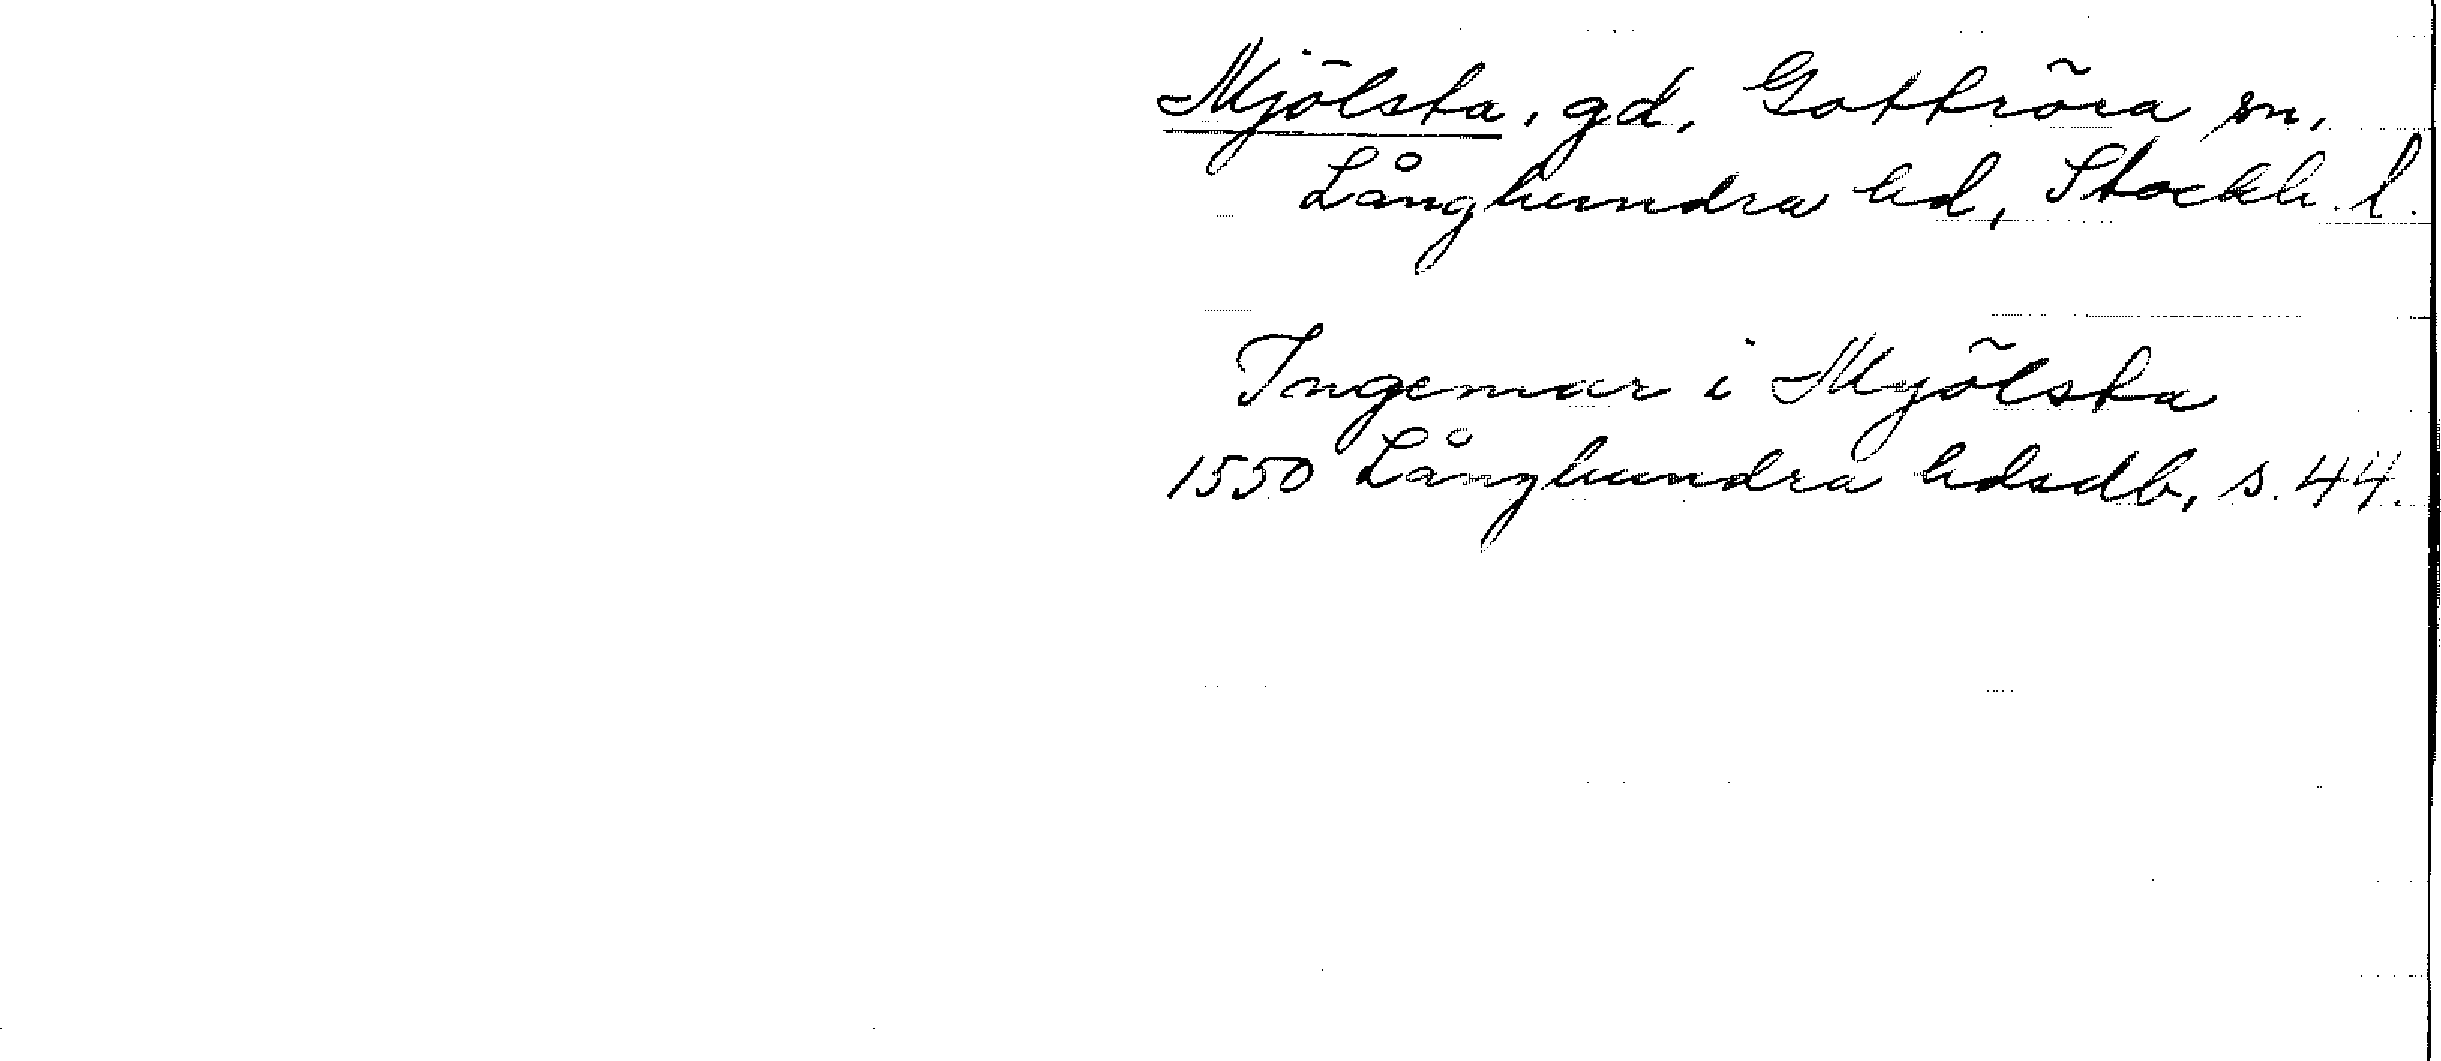 Mjölsta, gd, Gottröra sn,
Långhundra hd, Stockh. l.
Ingemar i Myölsta
1550 Långhundra hdsdb, s. 44.